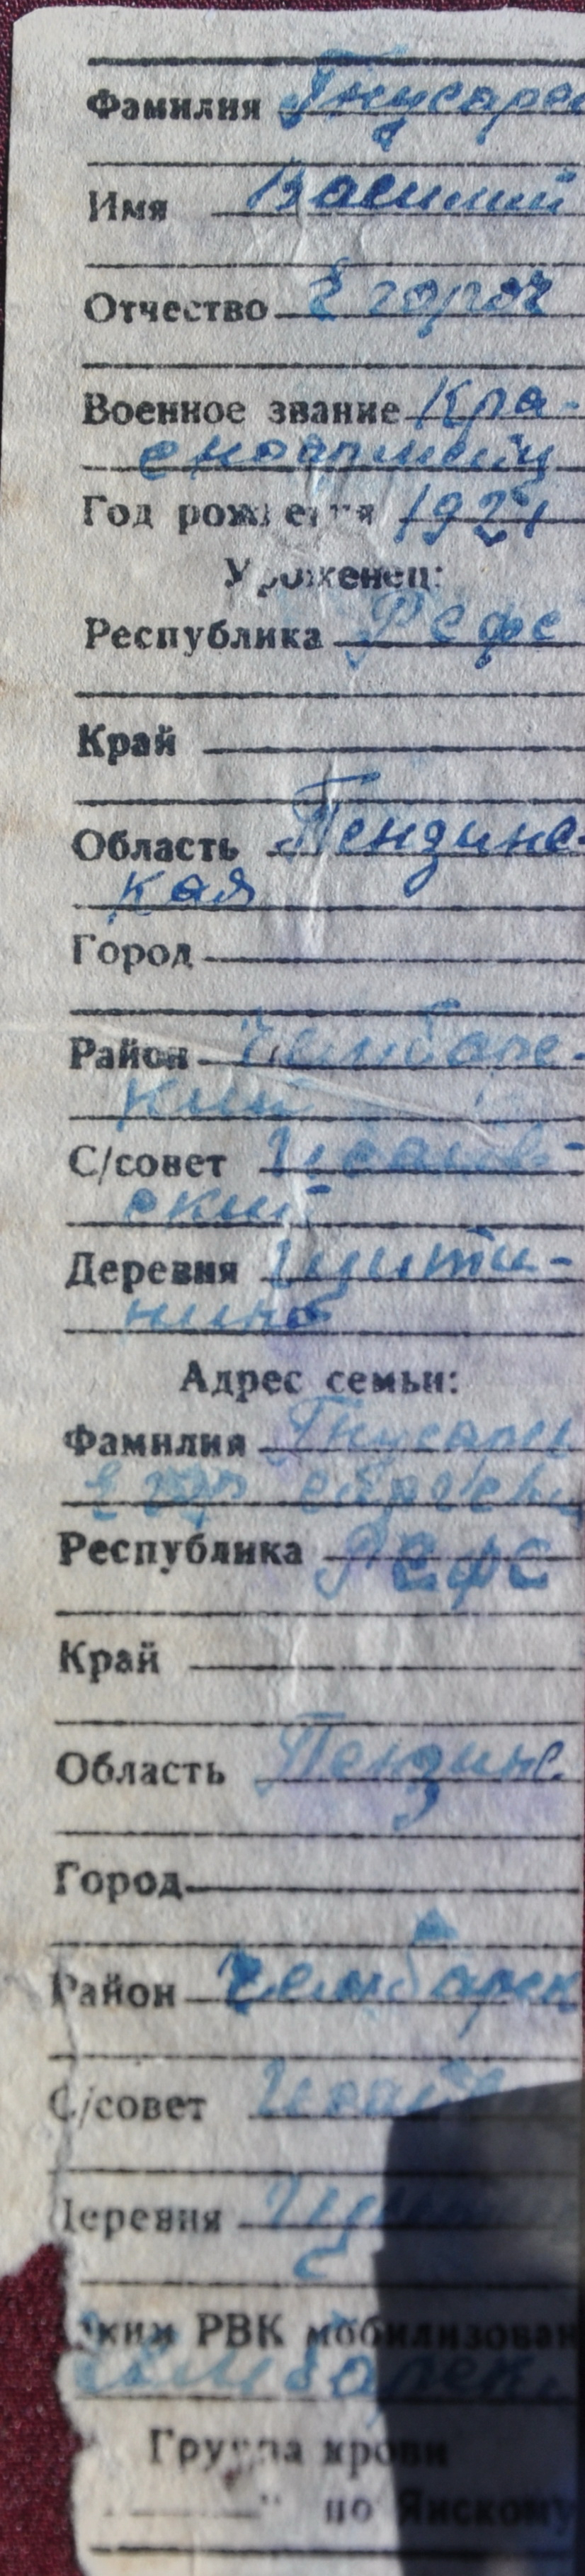 Фамилия Гнусарев
Имя Василий
Отчество Егороч
Военное звание Кра-
сноармеец
Год рождения 1921
Уроженец:
Республика Рсфс
Край
Область Пензинс-
кая
Город
Район Чембарс-
кий
С/совет
ский
Деревня
Адрес семьи:
Фамилия
Республика Рсфс
Край
Область Пензинс
Город
Район Чембарск
С/совет
Деревня
ким РВК мобилизован
Чембарск.
Группа крови
" по Янскому